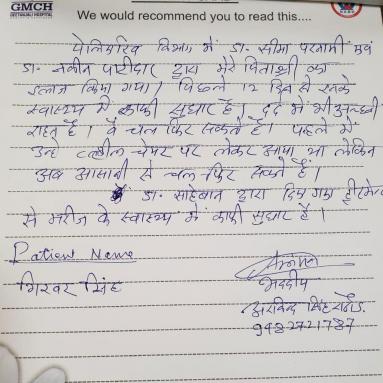 GMCH
GEETANJALI HOSPITAL
We would recommend you to read this....
पेलिएटिव विभाग में डा. सीमा परतानी एवं
डा. नवीन पाटीदार द्वारा मेरे पिताश्री का
इलाज किया गया। पिछले 12 दिन से उनके
स्वास्थ्य में काफी सुधार है। दर्द में भी अच्छी
राहत है। वे चल फिर सकते हैं। पहले मैं
उन्हें व्हील चेयर पर लेकर आया था लेकिन
अब आसानी से चल फिर सकते हैं।
डा. साहेबान द्वारा दिए गए ट्रीटमेंट
से मरीज के स्वास्थ्य में काफी सुधार है।
Patient Name
गिरवर सिंह
भवदीय
अरविन्द सिंह राठौड़
9482721787